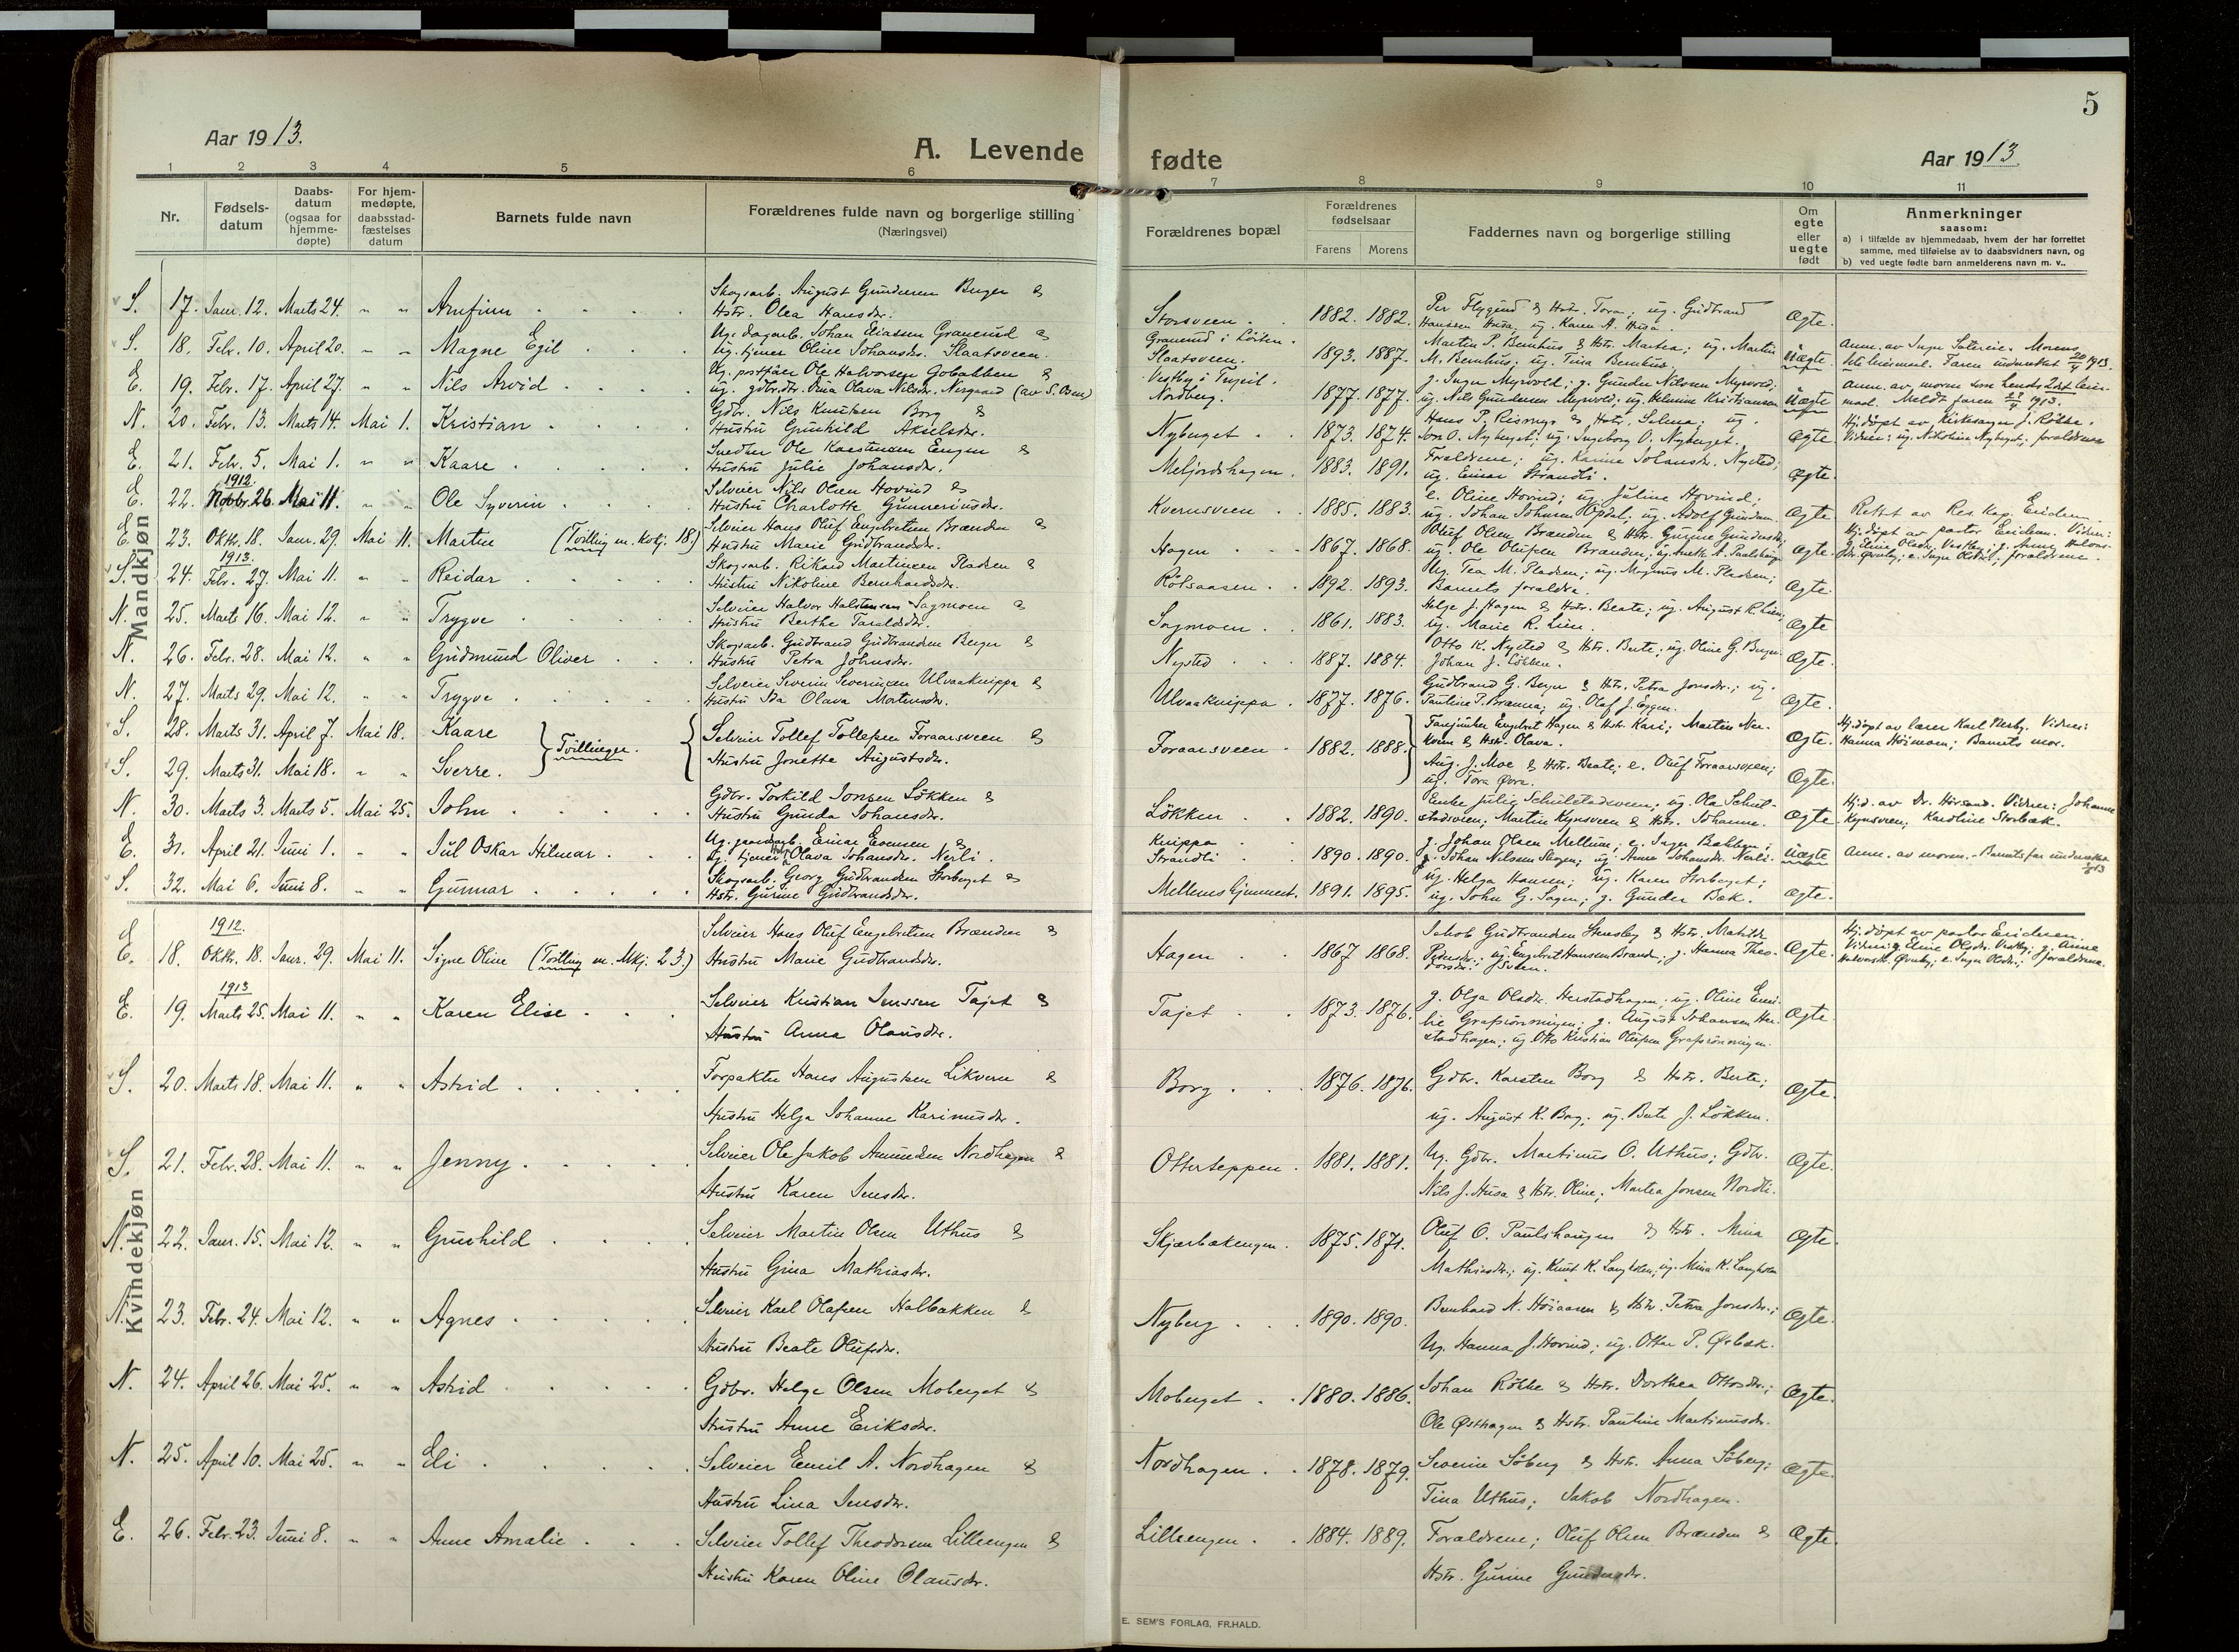 5
Aar 1913.
A. Levende fødte
Aar 1913
1 2 3 4 5 6 7 8 9 10 11
Nr.
Fødsels-
datum
Daabs-
datum
(ogsaa for
hjemme-
døpte)
For hjem-
medøpte,
daabsstad-
fæstelses
datum
Barnets fulde navn
Forældrenes fulde navn og borgerlige stilling
(Næringsvei)
Forældrenes bopæl
Forældrenes
fødselsaar
Farens Morens
Faddernes navn og borgerlige stilling
Om
egte
eller
uegte
født
Anmerkninger
saasom:
a) i tilfælde av hjemmedaab, hvem der har forrettet
samme, med tilføielse av to daabsvidners navn, og
b) ved uegte fødte barn anmelderens navn m. v..
Mandkjøn
S. 17. Janr. 12. Marts 24. " " Arnfinn
Skogsarb. August Gundersen Berger &
Hstr. Olea Hansdr.
Storsveen. 1882. 1882.
Per Flygind & Hstr. Tora; ug. Gudbrand
Hanssen Husa; ug. Karen A. Husa.
Ægte.
S. 18. Febr. 10. April 20. " " Magne Egil
Ug. dagarb. Johan Eliassen Granerud &
ug. tjener Oline Johansdr. Slaatsveen.
Granerud i Löiten.
Slaatsveen. 1893. 1887.
Martin P. Bernhus & Hstr. Martea; ug. Martin
M. Bernhus; ug. Tina Bernhus.
Uægte
E. 19. Febr. 17. April 27. " " Nils Arvid
Ug. postfører Ole Halvorsen Gobakken &
ug. gdbr.dtr. Dina Olava Nilsdr. Nergaard (av S. Osen)
Vestby i Trysil.
Nordberg. 1877. 1877.
g. Inger Myrvold; g. Gunder Nilssen Myrvold;
ug. Nils Gundersen Myrvold; ug. Helmine Kristiansen
Uægte
Anm. av moren som hendes 2det leier-
maal. Meldt faren 1913.
N. 20. Febr. 13. Marts 14. Mai 1. Kristian
Gdbr. Nils Knutsen Borg &
Hustru Gunhild Akselsdr.
Nyberget 1873. 1874.
Hans P. Rismyr & Hstr. Selma; ug.
Jon O. Nyberget; ug. Ingeborg O. Nyberget.
Ægte
Hj.döpt av Kirkesanger J. Röhke.
Vidner: ug. Nikoline Nyberget; forældrene
E. 21. Febr. 5. Mai 1. " " Kaare
Snedker Ole Karstensen Engen &
Hustru Julie Johansdr.
Mefjordshagen. 1883. 1891.
Forældrene; ug. Karine Johansdr. Nysted;
ug. Einar Strandli.
Ægte.
1912.
E. 22. Novbr. 26. Mai 11. " " Ole Syverin
Selveier Nils Olsen Hovind &
Hustru Charlotte Gunneriusdr.
Kvernsveen 1885. 1883.
e. Oline Hovind; ug. Juline Hovind;
ug. Johan Johnsen Opdal; ug. Adolf Gundersen.
Ægte
Rettet av Res. Kap. Erichsen
E. 23. Oktbr. 18. Janr. 29. Mai 11. Martin (Tvilling m. Kvkj. 18)
Selveier Hans Oluf Engebretsen Brænden &
Hustru Marie Gudbrandsdr.
Hagen 1867. 1868.
Oluf Olsen Brænden & Hstr. Gurine Gundersdr.;
ug. Ole Olufsen Brænden;
Ægte.
Hj.döpt av pastor Erichsen. Vidner:
g. Eline Olsdr. Vestby; g. Anne Halvors-
dr. Øvreby; e. Inger Olsdr.; forældrene
1913.
S. 24. Febr. 27. Mai 11. " " Reidar
Skogsarb. Rikard Martinsen Pladsen &
Hustru Nikoline Bernhardsdr.
Rötsaasen 1892. 1893.
Ug. Tea M. Pladsen; ug. Magnus M. Pladsen;
Barnets forældre.
Ægte.
N. 25. Marts 16. Mai 12. " " Trygve
Selveier Halvor Halstensen Sagmoen &
Hustru Berthe Taraldsdr.
Sagmoen 1861. 1883.
Helge J. Hagen & Hstr. Beate; ug. August R. Lien;
ug. Marie R. Lien.
Ægte
N. 26. Febr. 28. Mai 12. " " Gudmund Oliver
Skogsarb. Gudbrand Gudbrandsen Berger &
Hustru Petra Johnsdr.
Nysted 1887. 1884.
Otto K. Nysted & Hstr. Berte; ug. Oline G. Berger
Johan J. Løkken.
Ægte.
N. 27. Marts 29. Mai 12. " " Trygve
Selveier Severin Severinsen Ulvaaknippa &
Hustru Ida Olava Mortensdr.
Ulvaaknippa. 1877. 1876.
Gudbrand G. Berger & Hstr. Petra Jonsdr.; ug.
Pauline P. Brænna; ug. Olaf J. Eggen.
Ægte.
S. 28. Marts 31. April 7. Mai 18. Kaare
Tvillinger.
Selveier Tollef Tollefsen Foraarsveen &
Hustru Jonette Augustsdr.
Foraarsveen 1882. 1888.
Fanejunker Engebret Hagen & Hstr. Kari; Martin Ner-
kvern & Hstr. Olava.
Ægte.
Hj.döpt av lærer Karl Nesby. Vidner:
Hanna Höimoen; Barnets mor.
S. 29. Marts 31. Mai 18. " " Sverre.
Aug. J. Moe & Hstr. Beate; e. Oluf Foraarsveen;
ug. Tora Øvre.
Ægte.
N. 30. Marts 3. Marts 5. Mai 25. John
Gdbr. Torkild Jonsen Løkken &
Hustru Gunda Johansdr.
Løkken 1882. 1890.
Enke Julie Schulstadsveen; ug. Ola Schul-
stadsveen; Martin Kynsveen & Hstr. Johanne.
Ægte
Hj.d. av Dr. Hörsand. Vidner: Johanne
Kynsveen; Karoline Storbæk.
E. 31. April 21. Juni 1. " " Jul Oskar Hilmar
Ug. gaardsarb. Einar Evensen &
Ug. tjener Olava Johansdr. Nerli.
Knippa
Strandli 1890. 1890.
g. Johan Olsen Mellum; e. Inger Bakken;
g. Johan Nilssen Skogen; ug. Anne Johansdr. Nerli.
Uægte
Anm. av moren. Barnets far underrettet
1913
S. 32. Mai 6. Juni 8. " " Gunnar
Skogsarb. Georg Gudbrandsen Storberget &
Hstr. Gurine Gudbrandsdr.
1891. 1895.
ug. Helga Hansen; ug. Karen Storberget;
ug. John G. Sagen; g. Gunder Bæk.
Ægte.
Kvindekjøn
1912.
E. 18. Oktbr. 18. Janr. 29. Mai 11. Signe Oline (Tvilling m. Mkj. 23.)
Selveier Hans Oluf Engebretsen Brænden &
Hustru Marie Gudbrandsdr.
Hagen 1867 1868.
Jakob Gudbrandsen Stensby & Hstr. Mathilde
Pedersdr.; ug. Engebret Hanssen Brænden; g. Hanna Theo-
dorsdr.
Ægte.
Hj.döpt av pastor Erichsen.
Vidner: g. Eline Olsdr. Vestby; g. Anne
Halvorsdr. Øvreby; e. Inger Olsdr.; forældrene.
1913
E. 19. Marts 25. Mai 11. " " Karen Elise
Selveier Kristian Jenssen Tajet &
Hustru Anna Olausdr.
Tajet 1873. 1876.
g. Olga Olsdr. Herstadhagen; ug. Oline Emi-
lie Grafsrönningen; g. August Johansen Her-
stadhagen; ug. Otto Kristian Olufsen Grafsrönningen.
Ægte.
S. 20. Marts 18. Mai 11. " " Astrid
Forpakter Hans Augustsen Likvern &
Hustru Helga Johanne Karinusdr.
Borg 1876. 1876.
Gdbr. Karsten Borg & Hstr. Berte;
ug. August K. Borg; ug. Berte J. Løkken.
Ægte.
S. 21. Febr. 28. Mai 11. " " Jenny
Selveier Ole Jakob Amundsen Nordhagen &
Hustru Karen Jensdr.
Otterteppen. 1881. 1881.
Ug. Gdbr. Martinus O. Uthus; Gdbr.
Nils J. Husa & Hstr. Oline; Martea Jonsen Nordli.
Ægte.
N. 22. Janr. 15. Mai 12. " " Gunhild
Selveier Martin Olsen Uthus &
Hustru Gina Mathiasdr.
Skjærbækengen. 1875. 1871.
Oluf O. Paulshaugen & Hstr. Mina
Mathiasdr.; ug. Knut K. Langholen; ug. Mina K. Langholen
Ægte.
N. 23. Febr. 24. Mai 12. " " Agnes
Selveier Karl Olafsen Halbakken &
Hustru Beate Olufsdr.
Nyberg 1890. 1890.
Bernhard N. Höiaasen & Hstr. Petra Jonsdr.;
Ug. Hanna J. Hovind; ug. Otter P. Ørbæk.
Ægte.
N. 24. April 26. Mai 25. " " Astrid
Gdbr. Helge Olsen Moberget &
Hustru Anne Eriksdr.
Moberget 1880. 1886.
Johan Röhke & Hstr. Dorthea Ottosdr.;
Ole Østhagen & Hstr. Pauline Martinusdr.
Ægte.
N. 25. April 10. Mai 25. " " Eli
Selveier Emil A. Nordhagen &
Hustru Lina Jensdr.
Nordhagen 1878. 1879.
Severin Söberg & Hstr. Anna Söberg;
Tina Uthus; Jakob Nordhagen.
Ægte.
E. 26. Febr. 23. Juni 8. " " Anne Amalie
Selveier Tollef Theodorsen Lilleengen &
Hustru Karen Oline Olausdr.
Lilleengen 1884. 1889.
Forældrene; Oluf Olsen Brænden &
Hstr. Gurine Gundersdr.
Ægte.
E. SEM'S FORLAG, FR.HALD.